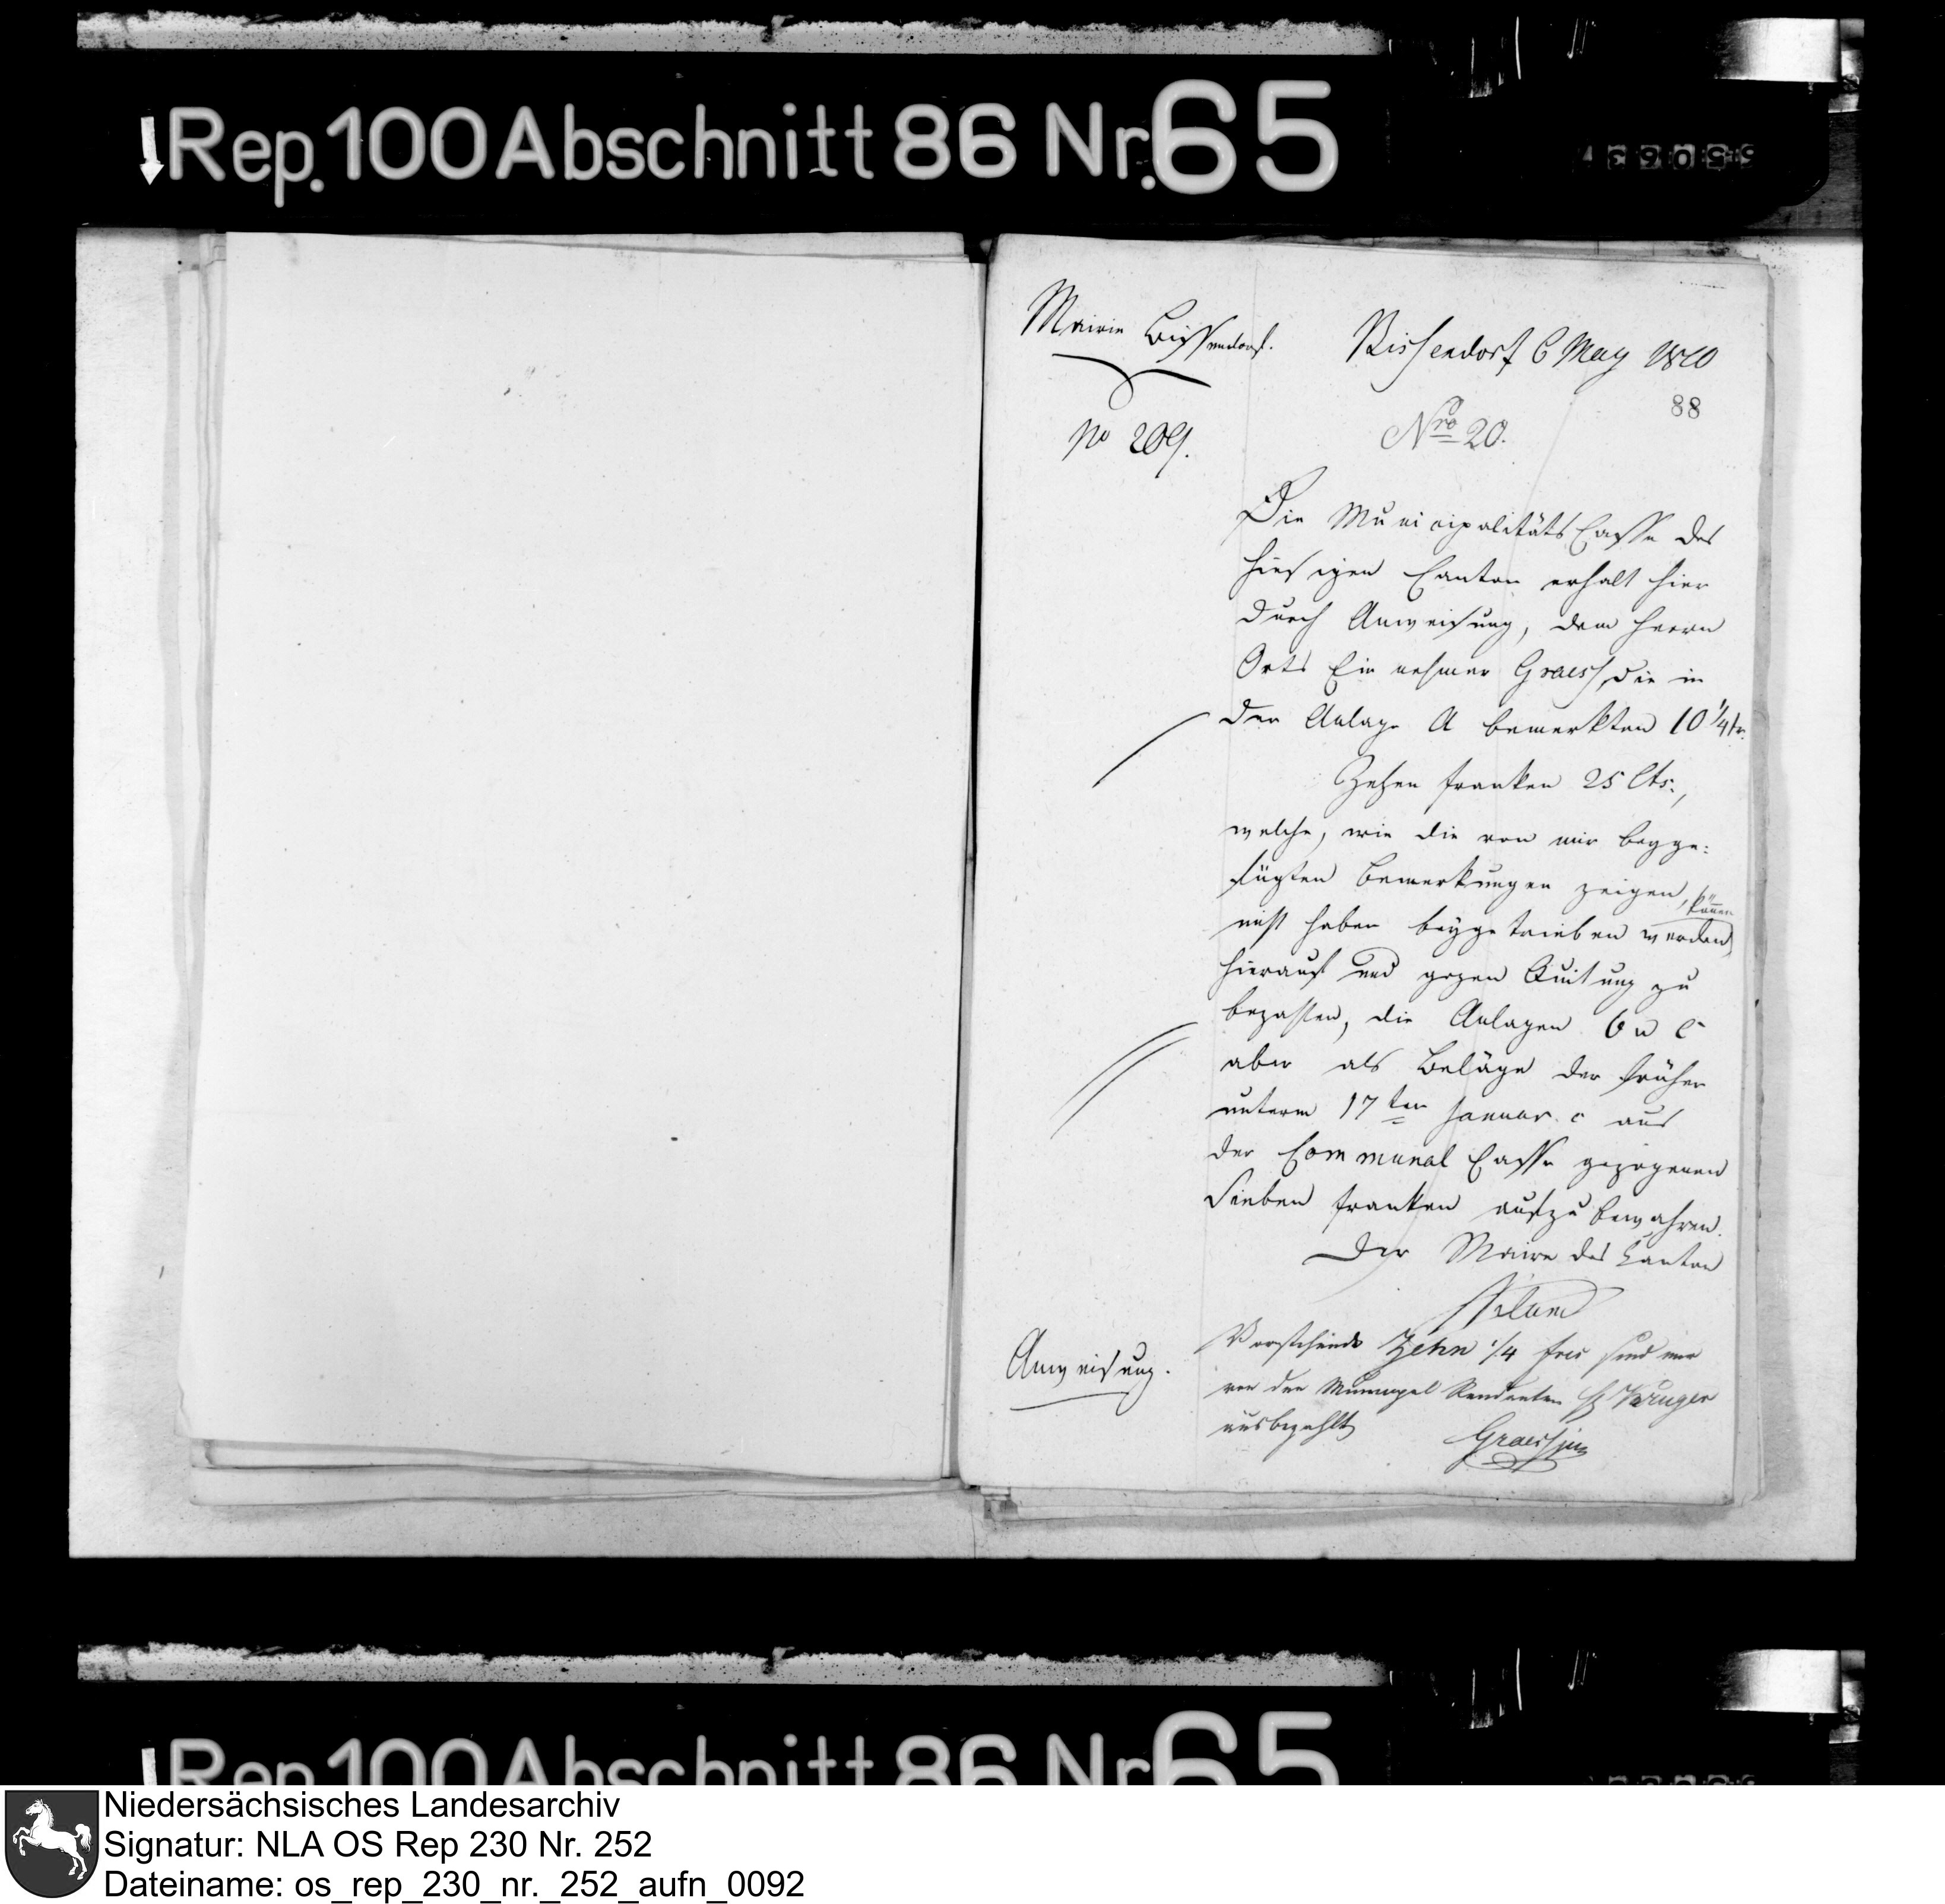 Rep. 100 Abschnitt 86 Nr. 65
Mairie Bissendorf.
no 209.
Bissendorf 6 May 1810
88
Nro 20.
Die Municipalitäts Casse des
hiesigen Canton erhalt hier
durch Anweisung, dem Herrn
Orts Einnehmer Graess, die in
der Anlage A bemerkten 10 1/4 fr.
Zehen Franken 25 Cts.,
welche, wie die von mir beyge:
fügten Bemerkungen zeigen, können
nicht haben beygetrieben werden,
hierauf und gegen Quitung zu
bezahlen, die Anlagen B u C
aber als Beläge der früher
unterm 17ten Januar c aus
der Communal Casse gezogenen
Sieben Franken aufzubewahren.
Der Maire des Canton
Anweisung.
Vorstehende Zehn 1/4 frcs sind mir
von den Municipal Rendanten H Kruger
ausbezahlt
Rep. 100 Abschnitt 86 Nr. 65
Niedersächsisches Landesarchiv
Signatur: NLA OS Rep 230 Nr. 252
Dateiname: os_rep_230_nr._252_aufn_0092